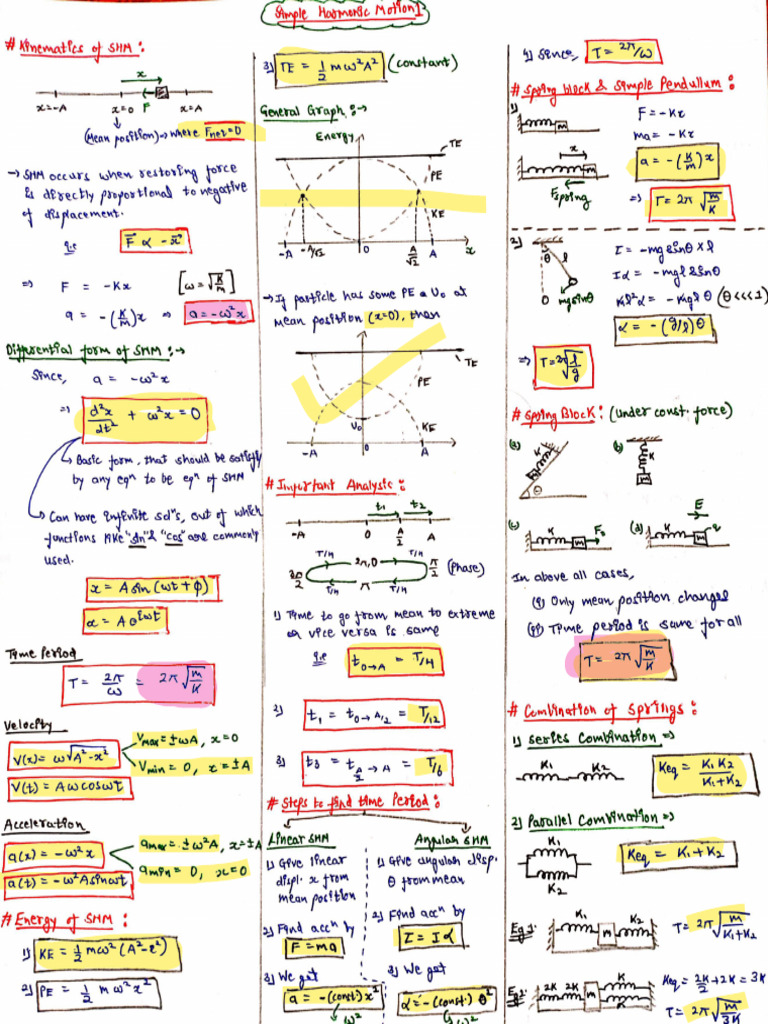 Simple Harmonic Motion
# Kinematics of SHM :
x
x=-A
x=0
F
x=A
(Mean position) → where Fnet=0
→ SHM occurs when restoring force
is directly proportional to negative
of displacement.
i.e
F⃗ ∝ -x⃗
⇒ F = -Kx [ω = √(K/m)]
a = -(K/m)x ⇒ a = -ω²x
Differential form of SHM :→
Since, a = -ω²x
⇒ d²x/dt² + ω²x = 0
↳ Basic form, that should be satisfy
by any eqⁿ to be eqⁿ of SHM
↳ Can have infinite solⁿs, out of which
functions like "sin" & "cos" are commonly
used.
x = A sin (ωt + φ)
Time Period
T = 2π/ω = 2π√(m/K)
Velocity
V(x) = ω√(A²-x²)
Vmax = ±ωA, x=0
Vmin = 0, x=±A
V(t) = Aω cosωt
Acceleration
a(x) = -ω²x
amax = ±ω²A, x=±A
amin = 0, x=0
a(t) = -ω²A sinωt
# Energy of SHM :
1) KE = 1/2 mω²(A²-x²)
2) PE = 1/2 mω²x²
3) TE = 1/2 mω²A² (constant)
General Graph :→
Energy
TE
PE
KE
-A
-A/√2
0
A/√2
A
x
→ If particle has some PE = U₀ at
mean position (x=0), then
TE
PE
U₀
KE
-A
A
# Important Analysis :
t₁
t₂
-A
0
A/2
A
T/4
2π,0
T/4
3π/2
π/2 (phase)
T/4
π
T/4
1) Time to go from mean to extreme
or vice versa is same
i.e t₀→A = T/4
2) t₁ = t₀→A/2 = T/12
3) t₃ = tA/2→A = T/6
# Steps to find time Period :
Linear SHM
1) Give linear
displ. x from
mean position
2) Find accⁿ by
F = ma
3) We get
a = -(const) x²
ω²
Angular SHM
1) Give angular disp.
θ from mean
2) Find accⁿ by
τ = Iα
3) We get
α = -(const) θ²
4) Since, T = 2π/ω
# Spring block & Simple Pendullum :
1)
m
x
m
Fspring
F = -Kx
ma = -Kx
a = -(K/m)x
⇒ T = 2π√(m/K)
2)
θ
l
0
mgsinθ
τ = -mgsinθ × l
Iα = -mgl sinθ
ml²α = -mglθ (θ<<<1)
α = -(g/l)θ
⇒ T = 2π√(l/g)
# Spring Block : (under const. force)
(a)
K
m
θ
(b)
K
m
(c)
K
m
F₀
(d)
K
m
q
E
In above all cases,
(i) Only mean position changes
(ii) Time period is same for all
T = 2π√(m/K)
# Combination of Springs :
1) Series Combination ⇒
K₁
K₂
Keq = K₁K₂/(K₁+K₂)
2) Parallel Combination ⇒
K₁
K₂
Keq = K₁+K₂
Eg 1:
K₁
m
K₂
T = 2π√(m/(K₁+K₂))
Eg 2:
2K
2K
m
K
K
Keq = 2K/2 + 2K = 3K
T = 2π√(m/3K)